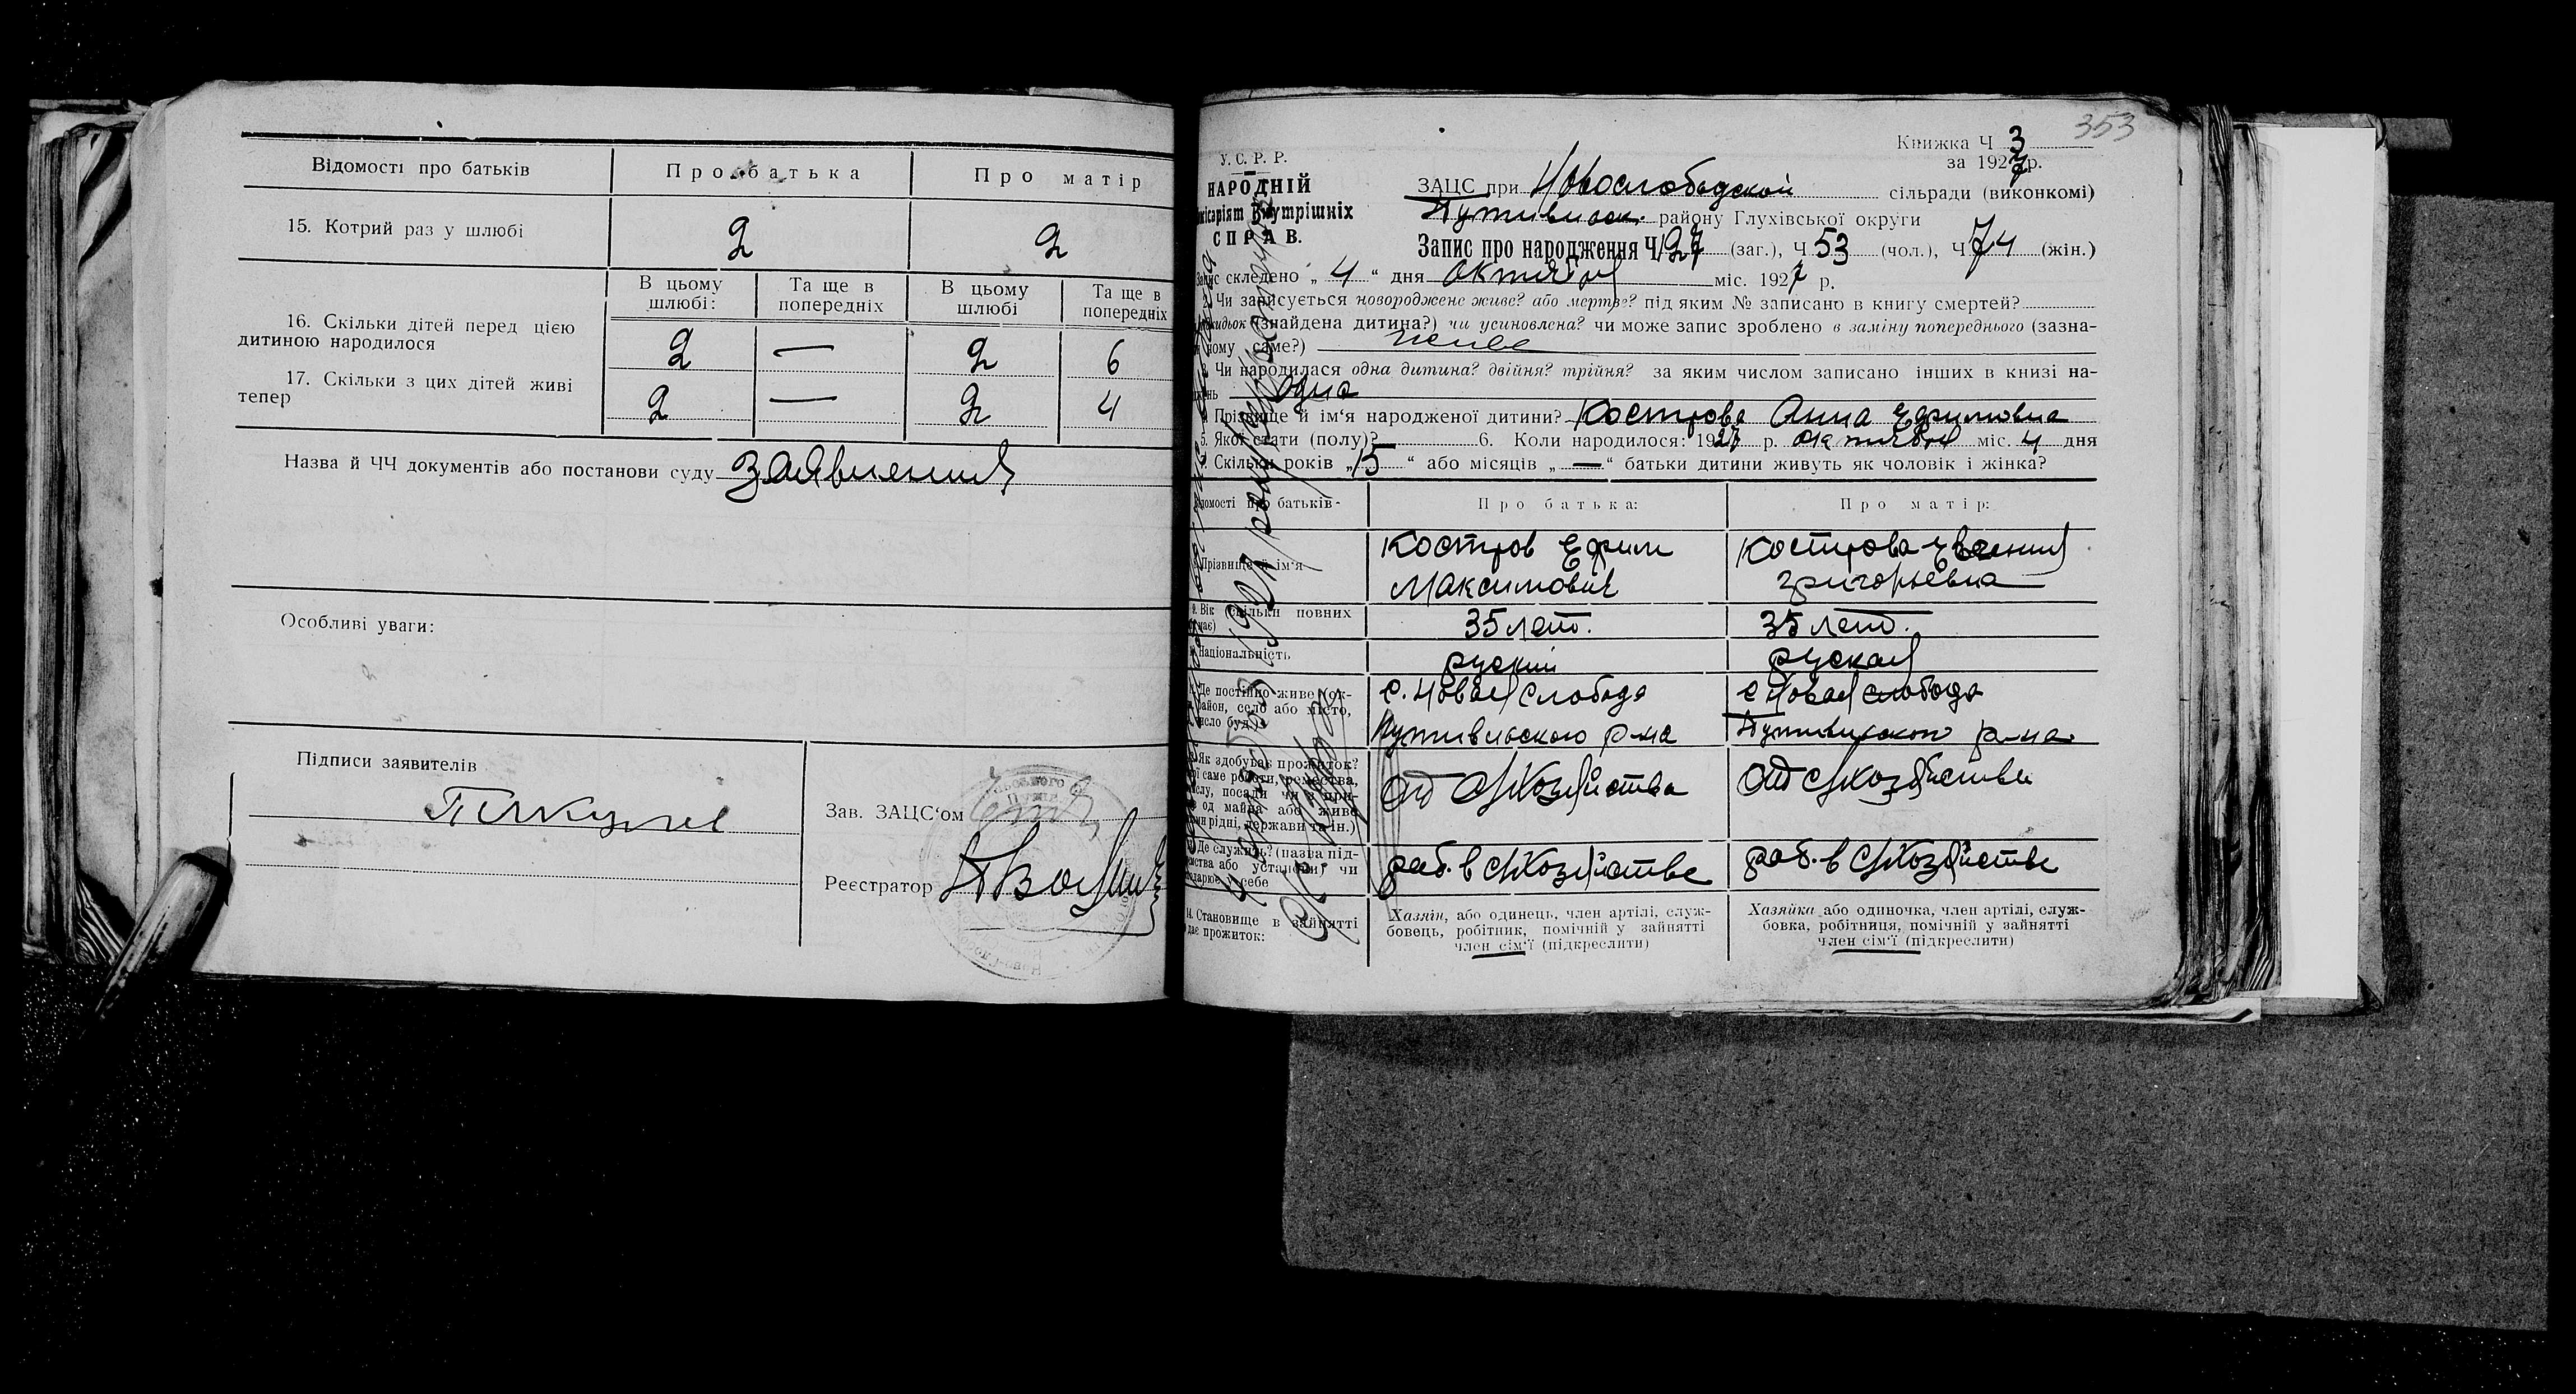 Відомості про батьків
Про батька
Про матір
15. Котрий раз у шлюбі
2
2
В цьому шлюбі:
Та ще в попередніх
В цьому шлюбі
Та ще в попередніх
16. Скільки дітей перед цією
дитиною народилося
2 — 2 6
17. Скільки з цих дітей живі
тепер
2 — 2 4
Назва й ЧЧ документів або постанови суду заявления
Особливі уваги:
Підписи заявителів
Зав. ЗАЦС'ом
Реєстратор
353
Книжка Ч 3
за 1927 р.
У. С. Р. Р.
НАРОДНІЙ
Внутрішніх
СПРАВ.
ЗАЦС при Новослободской сільради (виконкомі)
Путивльск. району Глухівської округи
Запис про народження Ч 127 (заг.), Ч 53 (чол.), Ч 74 (жін.)
Запис складено „ 4 “ дня октября міс. 1927 р.
Чи записується новороджене живе? або мертве? під яким № записано в книгу смертей?
(знайдена дитина?) чи усиновлена? чи може запис зроблено в заміну попереднього (зазна-
ному саме?) живе
Чи народилася одна дитина? двійня? трійня? за яким числом записано інших в книзі на-
одна
Прізвище й ім'я народженої дитини? Кострова Анна Ефимовна
5. Якої стати (полу)? 6. Коли народилося: 1927 р. октября міс. 4 дня
Скільки років „15“ або місяців „—“ батьки дитини живуть як чоловік і жінка?
про батьків-
Про батька:
Про матір:
Прізвище й ім'я
Костров Ефим
Максимович
Кострова Евгения
Григорьевна
9. Вік (скільки повних
35 лет.
35 лет.
Національність
руский
руская
Де постійно живе (ок-
район, село або місто,
с. Новая Слобода
Путивльского р-на
с Новая слобода
Путивльского р-на
Як здобуває прожиток?
од майна або живе
рідні, держави та ін.)
от с/хозяйства
от с/хозяйства
Де служить? (назва під-
раб. в с/хозяйстве
раб. в с/хозяйстве
14. Становище в занятті
дає прожиток:
Хазяїн, або одинець, член артілі, служ-
бовець, робітник, помічній у зайнятті
член сім'ї (підкреслити)
Хазяйка або одиночка, член артілі, служ-
бовка, робітниця, помічній у зайнятті
член сім'ї (підкреслити)